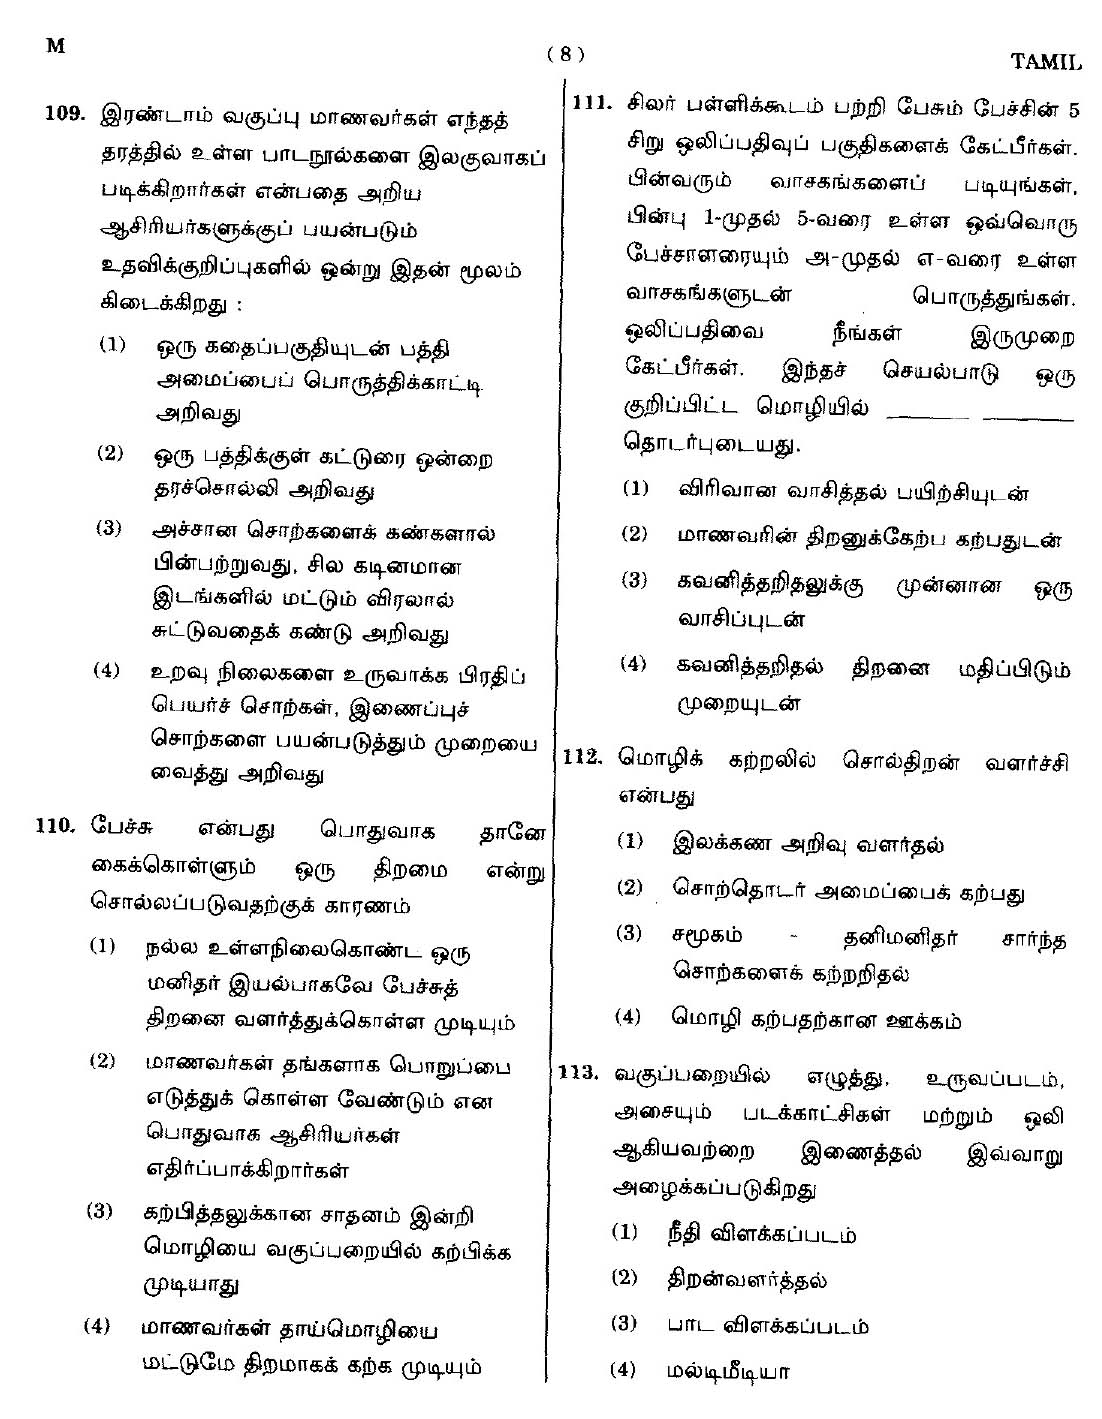 M
( 8 )
TAMIL
109. இரண்டாம் வகுப்பு மாணவர்கள் எந்தத்
தரத்தில் உள்ள பாடநூல்களை இலகுவாகப்
படிக்கிறார்கள் என்பதை அறிய
ஆசிரியர்களுக்குப் பயன்படும்
உதவிக்குறிப்புகளில் ஒன்று இதன் மூலம்
கிடைக்கிறது :
(1) ஒரு கதைப்பகுதியுடன் பத்தி
அமைப்பைப் பொருத்திக்காட்டி
அறிவது
(2) ஒரு பத்திக்குள் கட்டுரை ஒன்றை
தரச்சொல்லி அறிவது
(3) அச்சான சொற்களைக் கண்களால்
பின்பற்றுவது, சில கடினமான
இடங்களில் மட்டும் விரலால்
சுட்டுவதைக் கண்டு அறிவது
(4) உறவு நிலைகளை உருவாக்க பிரதிப்
பெயர்ச் சொற்கள், இணைப்புச்
சொற்களை பயன்படுத்தும் முறையை
வைத்து அறிவது
110. பேச்சு என்பது பொதுவாக தானே
கைக்கொள்ளும் ஒரு திறமை என்று
சொல்லப்படுவதற்குக் காரணம்
(1) நல்ல உள்ளநிலைகொண்ட ஒரு
மனிதர் இயல்பாகவே பேச்சுத்
திறனை வளர்த்துக்கொள்ள முடியும்
(2) மாணவர்கள் தங்களாக பொறுப்பை
எடுத்துக் கொள்ள வேண்டும் என
பொதுவாக ஆசிரியர்கள்
எதிர்ப்பாக்கிறார்கள்
(3) கற்பித்தலுக்கான சாதனம் இன்றி
மொழியை வகுப்பறையில் கற்பிக்க
முடியாது
(4) மாணவர்கள் தாய்மொழியை
மட்டுமே திறமாகக் கற்க முடியும்
111. சிலர் பள்ளிக்கூடம் பற்றி பேசும் பேச்சின் 5
சிறு ஒலிப்பதிவுப் பகுதிகளைக் கேட்பீர்கள்.
பின்வரும் வாசகங்களைப் படியுங்கள்,
பின்பு 1-முதல் 5-வரை உள்ள ஒவ்வொரு
பேச்சாளரையும் அ-முதல் எ-வரை உள்ள
வாசகங்களுடன் பொருத்துங்கள்.
ஒலிப்பதிவை நீங்கள் இருமுறை
கேட்பீர்கள். இந்தச் செயல்பாடு ஒரு
குறிப்பிட்ட மொழியில் ________ ________
தொடர்புடையது.
(1) விரிவான வாசித்தல் பயிற்சியுடன்
(2) மாணவரின் திறனுக்கேற்ப கற்பதுடன்
(3) கவனித்தறிதலுக்கு முன்னான ஒரு
வாசிப்புடன்
(4) கவனித்தறிதல் திறனை மதிப்பிடும்
முறையுடன்
112. மொழிக் கற்றலில் சொல்திறன் வளர்ச்சி
என்பது
(1) இலக்கண அறிவு வளர்தல்
(2) சொற்தொடர் அமைப்பைக் கற்பது
(3) சமூகம் - தனிமனிதர் சார்ந்த
சொற்களைக் கற்றறிதல்
(4) மொழி கற்பதற்கான ஊக்கம்
113. வகுப்பறையில் எழுத்து, உருவப்படம்,
அசையும் படக்காட்சிகள் மற்றும் ஒலி
ஆகியவற்றை இணைத்தல் இவ்வாறு
அழைக்கப்படுகிறது
(1) நீதி விளக்கப்படம்
(2) திறன்வளர்த்தல்
(3) பாட விளக்கப்படம்
(4) மல்டிமீடியா